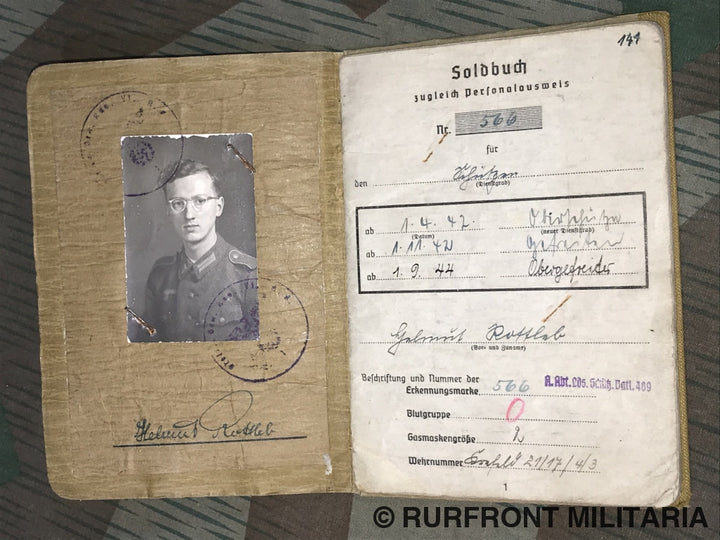 Helmut Rottleb
141
Soldbuch
zugleich Personalausweis
Nr. 566
für
den Schützen
(Dienstgrad)
ab 1.4.42. Oberschütze
(Datum) (neuer Dienstgrad)
ab 1.11.42 Gefreiter
ab 1.9.44 Obergefreiter
Helmut Rottleb
(Vor- und Zuname)
Beschriftung und Nummer der
Erkennungsmarke 566 A.Abt. Lds. Schtz. Batl. 409
Blutgruppe O
Gasmaskengröße 2
Wehrnummer Krefeld 21/17/4/3
1
© RURFRONT MILITARIA